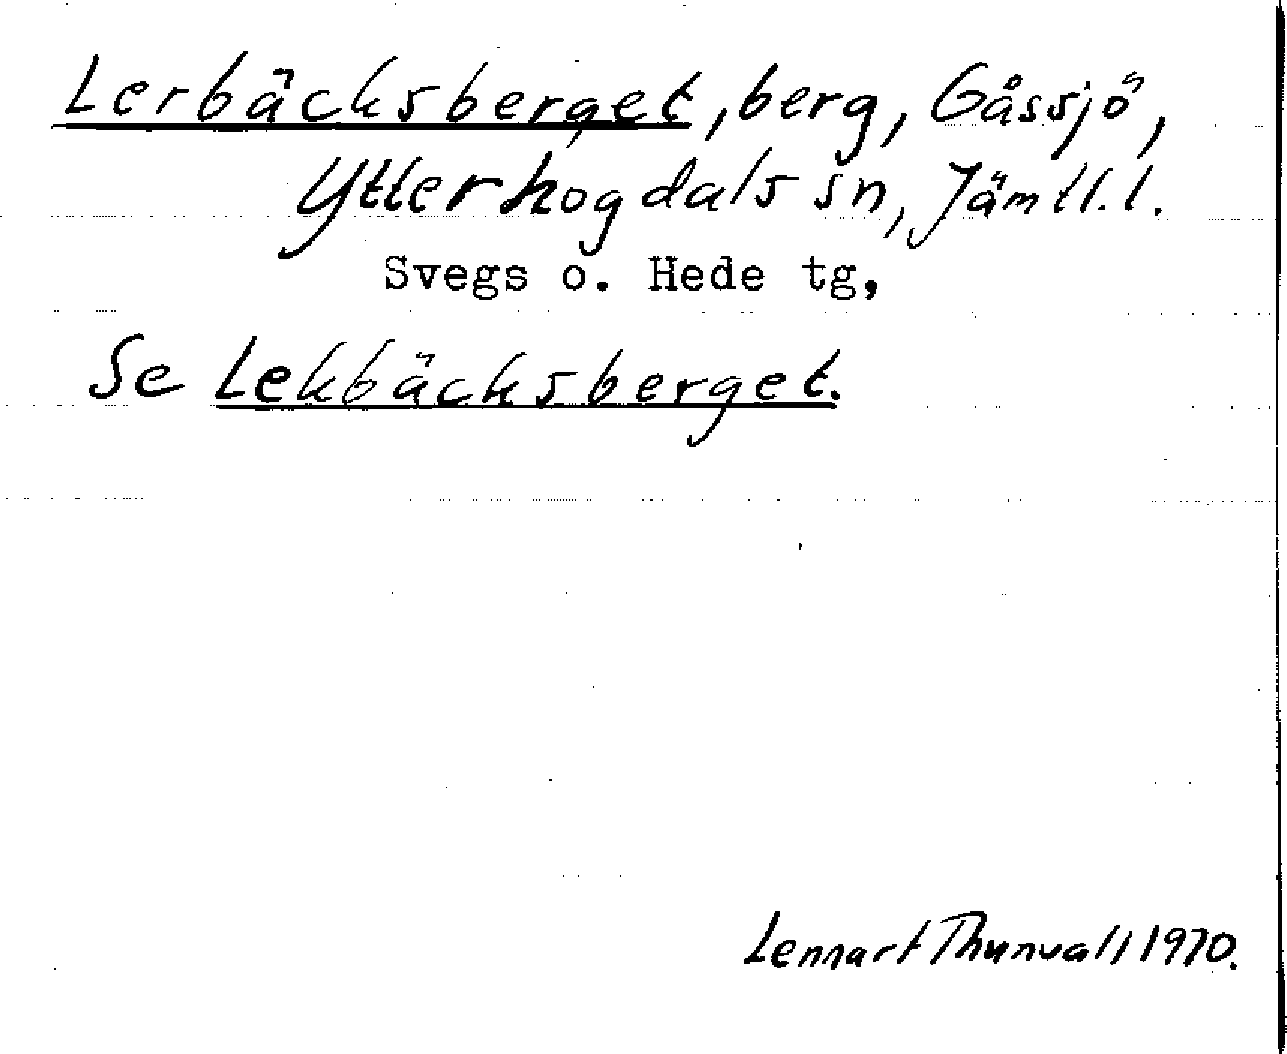 Lerbäcksberget, berg, Gåssjö,
Ytterhogdals sn, Jämtl. l.
Svegs o. Hede tg,
Se Lekbäcksberget.
Lennart Thunvall 1970.